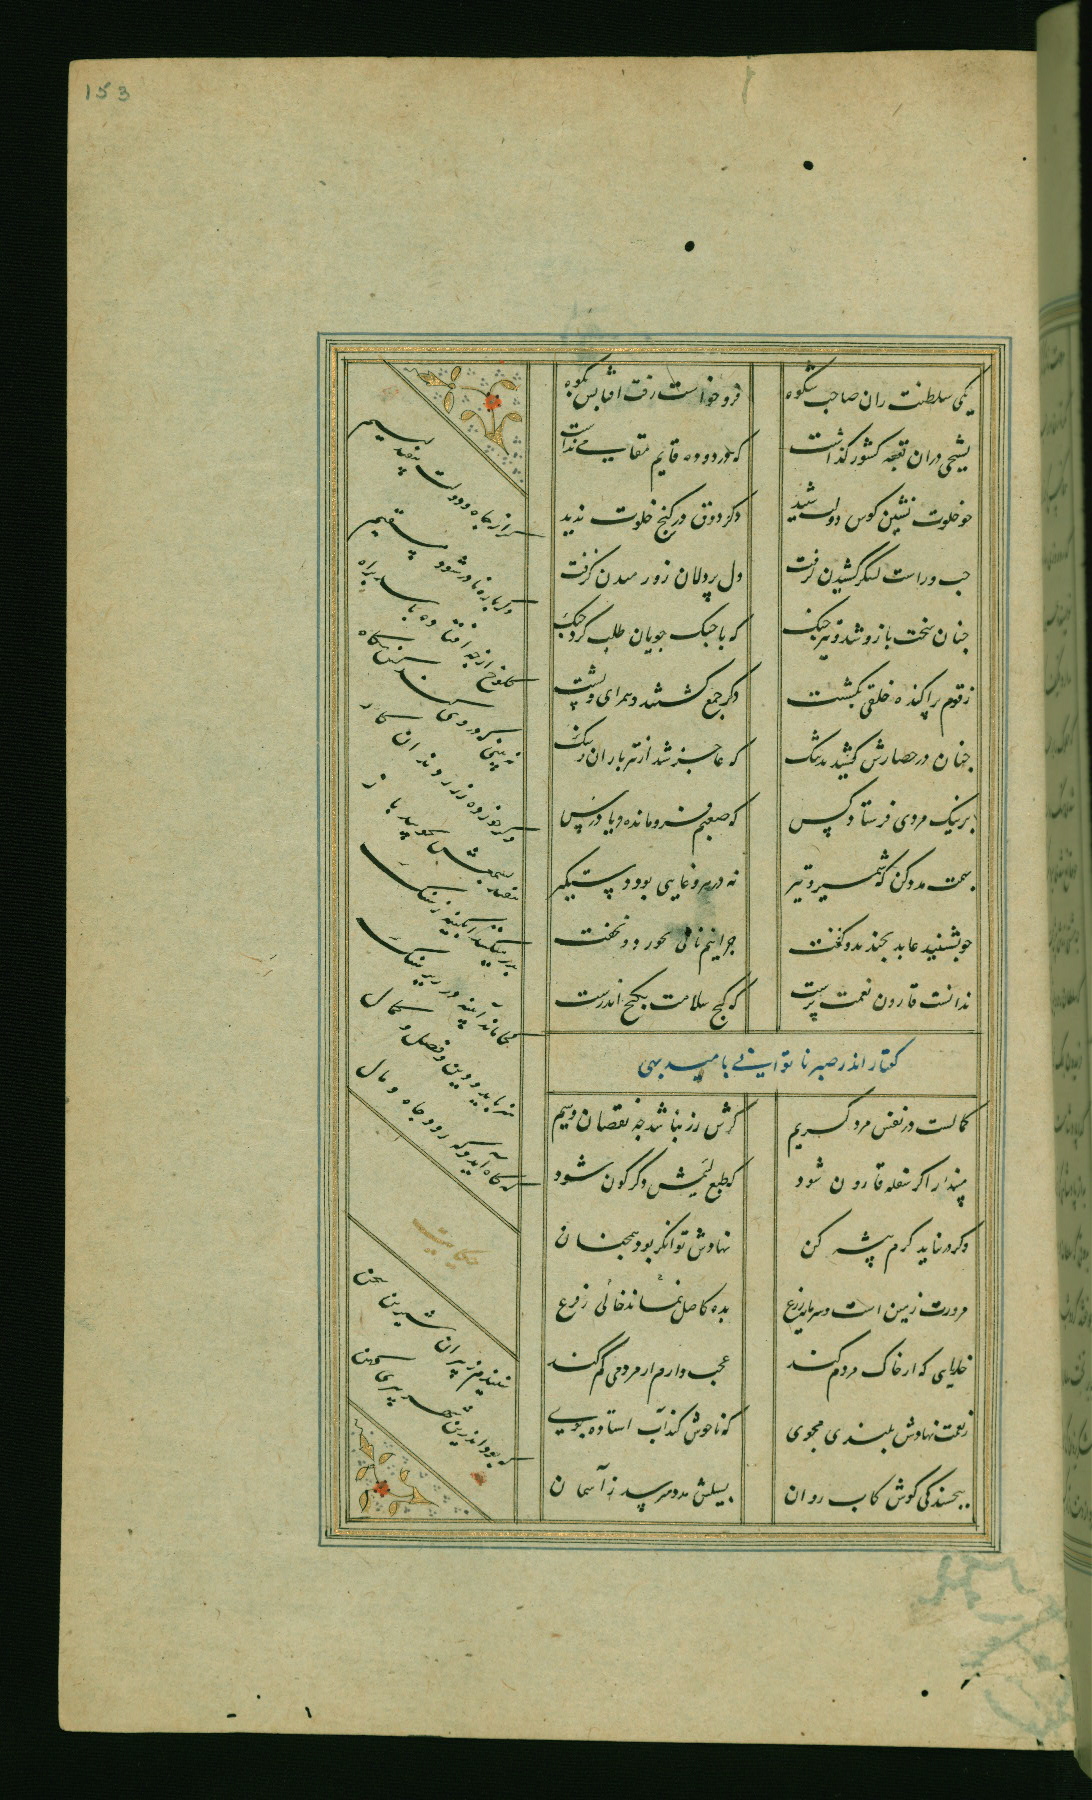 153
یکی سلطنت ران صاحب شکوه
فرو خواست رفت آفتابش بکوه
بشیخی دران بقعه کشور گذاشت
که در دوده قایم مقامی نداشت
چو خلوت نشین کوس دولت شنید
دگر ذوق در کنج خلوت ندید
چپ و راست لشکر کشیدن گرفت
دل پردلان زو رمیدن گرفت
چنان سخت بازو شد و تیز چنگ
که با جنگ جویان طلب کرد جنگ
ز قوم پراکنده خلقی بکشت
دگر جمع گشتند و همرای و پشت
چنان در حصارش کشید تنگ
که عاجز شد از تیر باران و سنگ
بر نیک مردی فرستاد کس
که صعبم فرومانده فریاد رس
بهمت مدد کن که شمشیر و تیر
نه در هر وغایی بود دستگیر
چو بشنید عابد بخندید و گفت
چرا نیم نانی نخورد و نخفت
ندانست قارون نعمت پرست
که گنج سلامت بکنج اندرست
گفتار اندر صبر ناتوانی بامید بهی
کمالست در نفس مرد کریم
گرش زر نباشد چه نقصان و بیم
مپندار اگر سفله قارون شود
که طبع لئیمش دگرگون شود
وگر درنیابد کرم پیشه کن
نهادش توانگر بود همچنان
مروت زمین است و سرمایه زرع
بده کاصل نماند خالی ز فرع
خدایی که از خاک مردم کند
عجب دارم ار مردمی گم کند
ز نعمت نهادش بلندی مجوی
که ناخوش کند آب استاده بوی
ببخشندگی کوش کاب روان
بسیلش مدد میرسد ز آسمان
گر از جاه و دولت بیفتد لئیم
دگر باره نادر شود مستقیم
کلوخ ارچه افتاده باشد براه
نه بینی که در وی کند کس نگاه
وگر خرده زر ز دندان گاز
بیفتد بشمعش بجویند باز
بدر میکنند آبگینه ز سنگ
کجا ماند آینه در زیر زنگ
هنر باید و دین و فضل و کمال
که گاه آید و گه رود جاه و مال
حکایت
شنیدم ز پیران شیرین سخن
که بود اندرین شهر پیری کهن